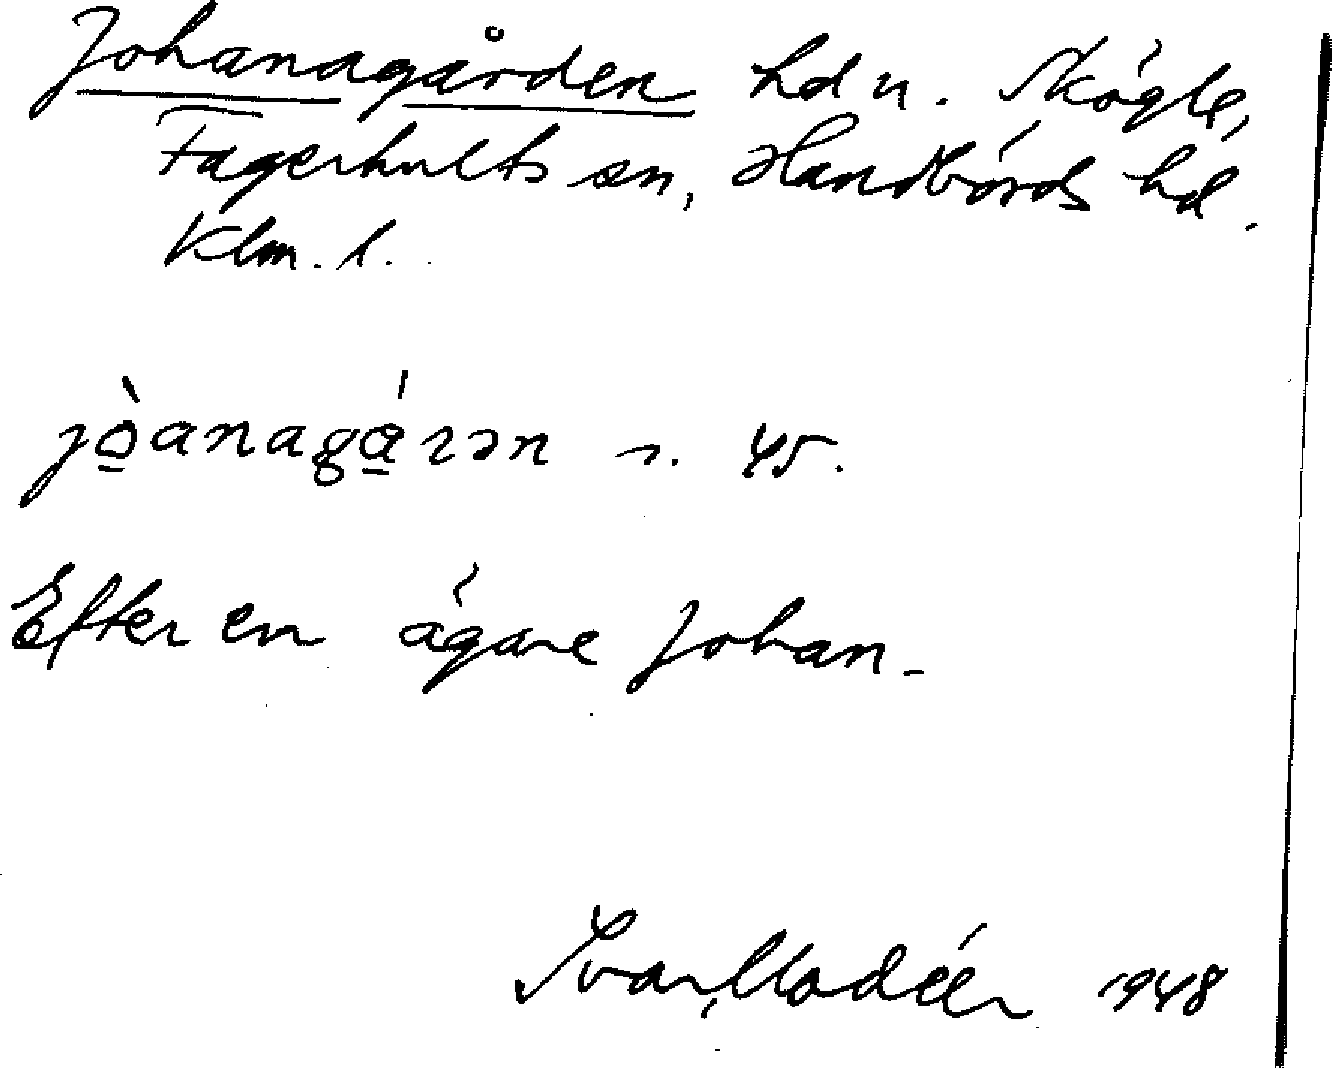 Johanagården hd u. Skögle,
Fagerhults sn, Handbörds hd.
Klm. l.
jò̱anagá̱rən s. 45.
Efter en ägare Johan.
Ivar Modéer 1948